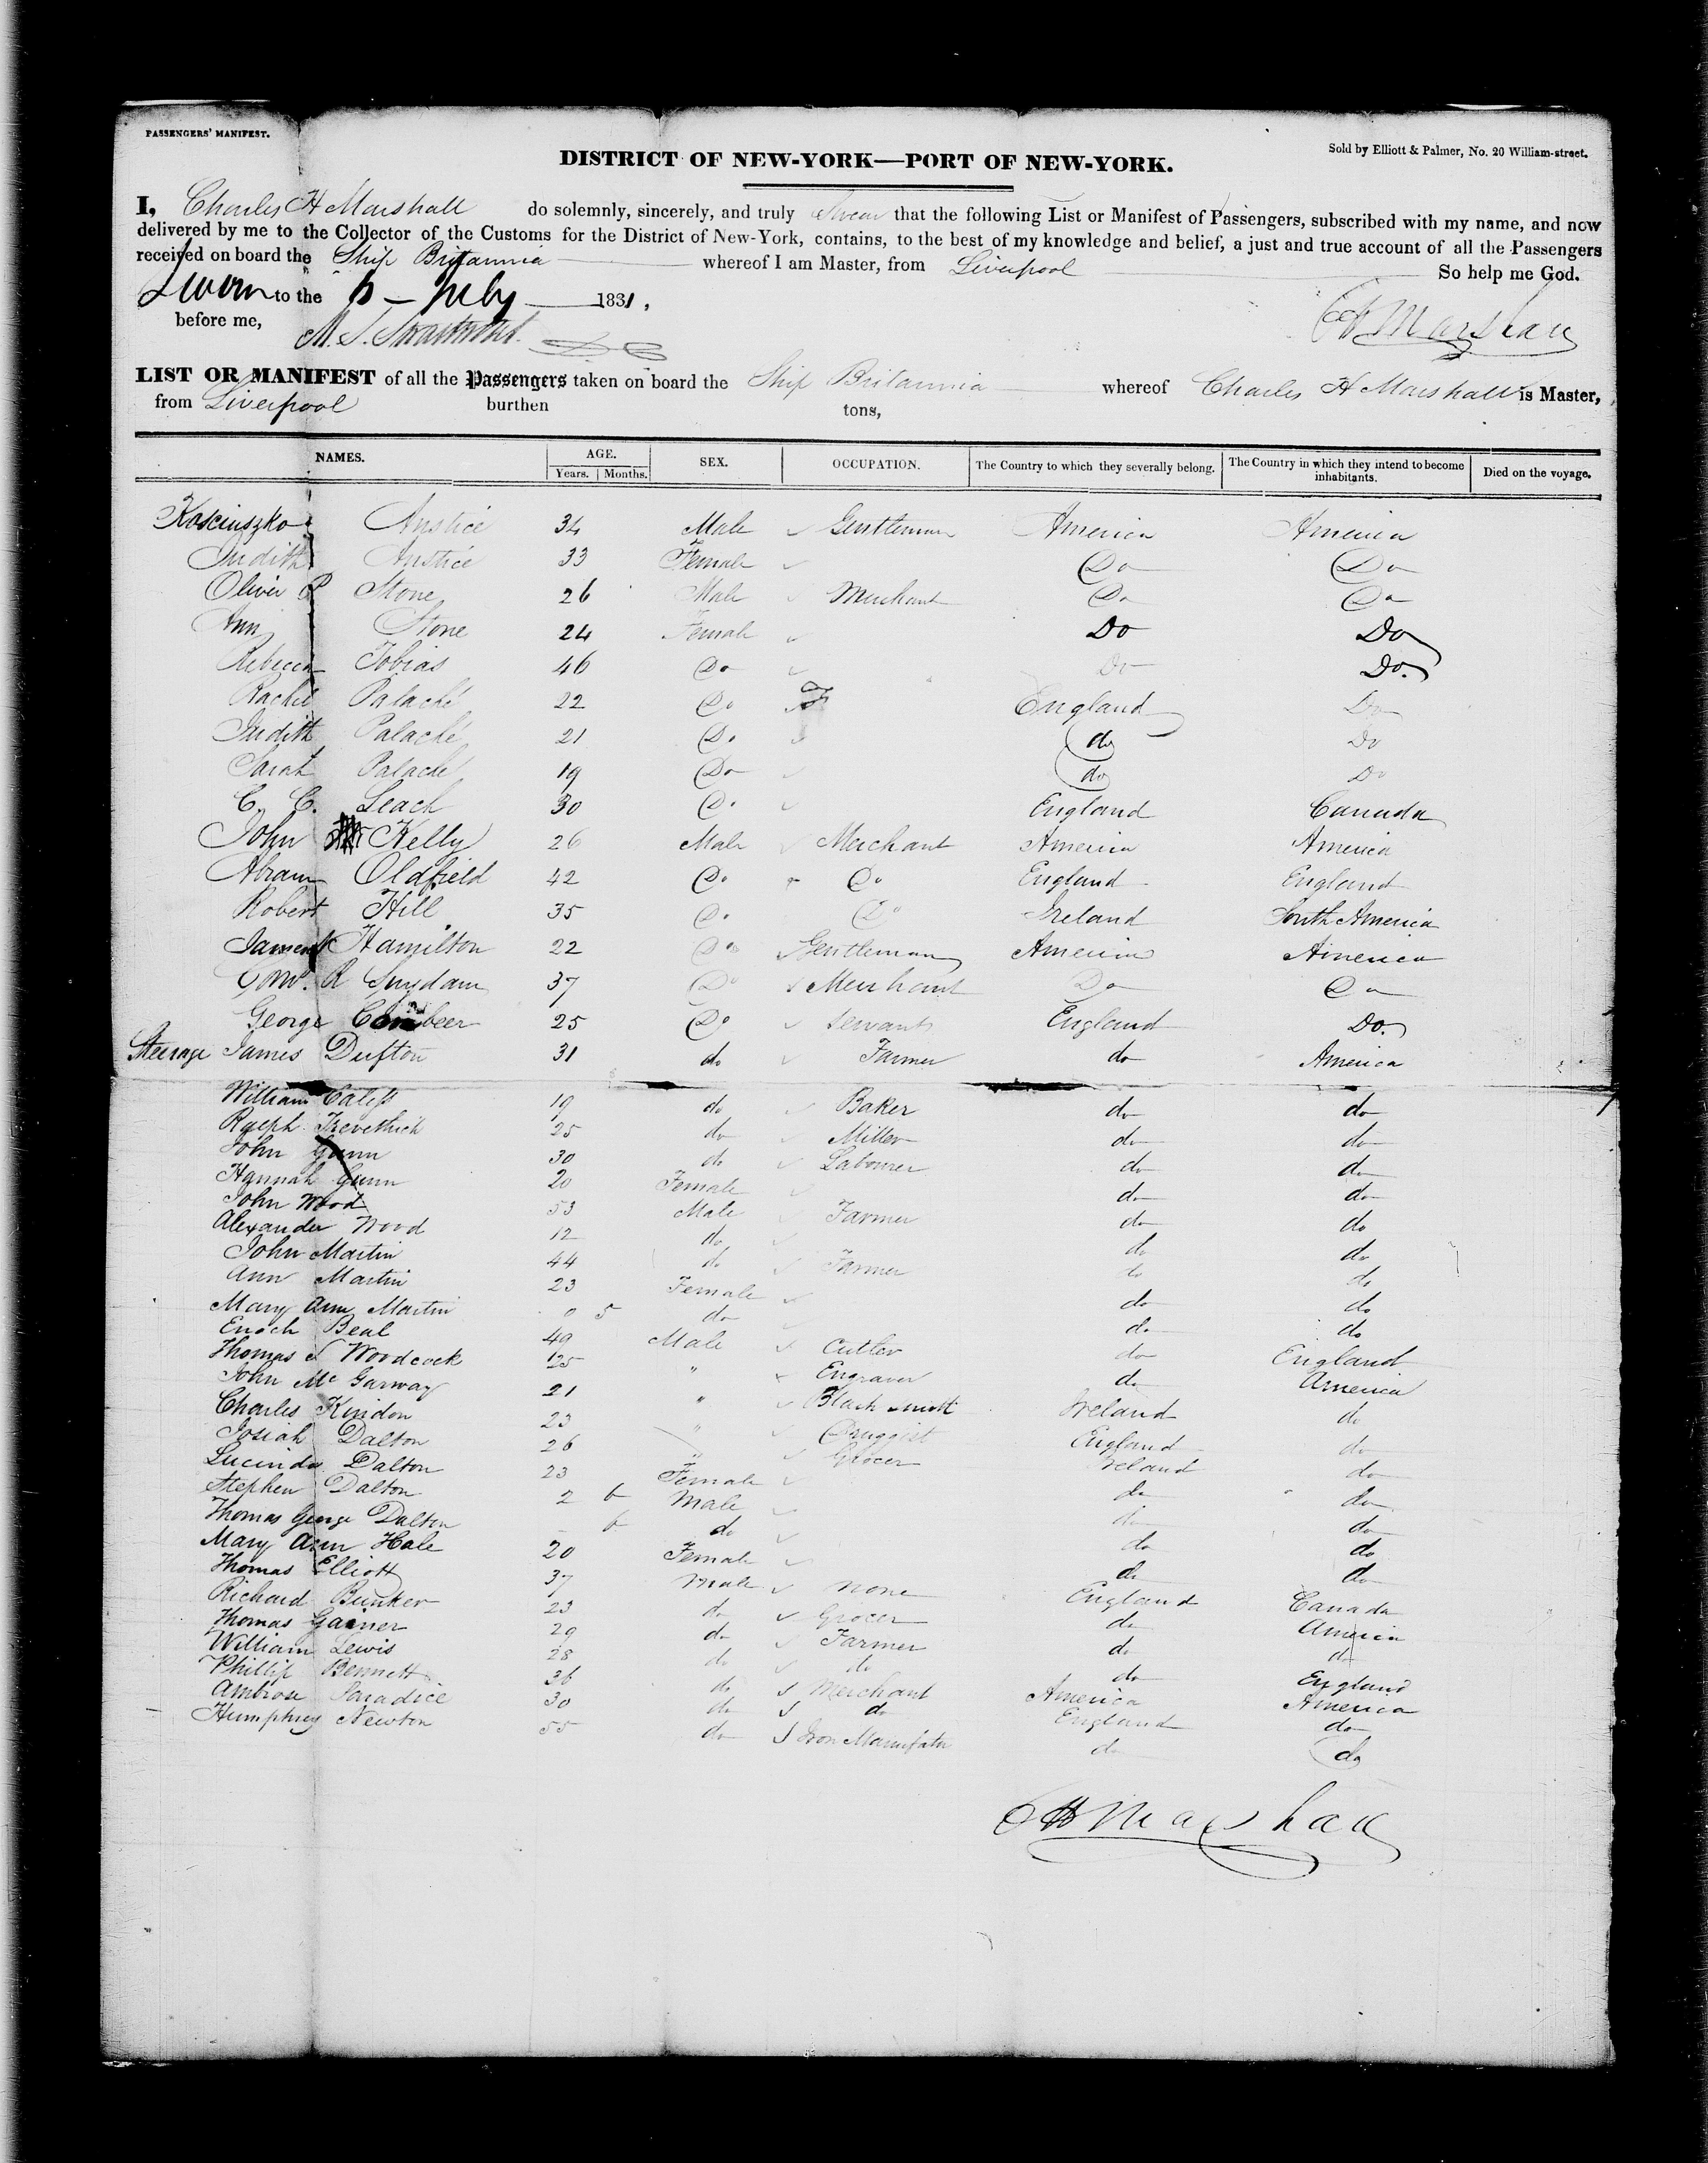 PASSENGERS' MANIFEST.
Sold by Elliott & Palmer, No. 20 William-street.
DISTRICT OF NEW-YORK—PORT OF NEW-YORK.
I, Charles H Marshall do solemnly, sincerely, and truly Swear that the following List or Manifest of Passengers, subscribed with my name, and now
delivered by me to the Collector of the Customs for the District of New-York, contains, to the best of my knowledge and belief, a just and true account of all the Passengers
received on board the Ship Britannia whereof I am Master, from Liverpool So help me God.
Sworn to the 6 - July 1831,
before me, CH Marshall
LIST OR MANIFEST of all the Passengers taken on board the Ship Britannia whereof Charles H Marshall is Master,
from Liverpool burthen tons,
NAMES. AGE. Years. Months. SEX. OCCUPATION. The Country to which they severally belong. The Country in which they intend to become inhabitants. Died on the voyage.
Kosciuszko Anstice 34 Male Gentleman America America
Judith Anstice 33 Female Do Do
Oliver P Stone 26 Male Merchant Do Do
Ann Stone 24 Female Do Do
Rebecca Tobias 46 Do Do Do.
Rachel Palaché 22 Do England Do
Judith Palaché 21 Do do Do
Sarah Palaché 19 Do do Do
C. C. Leach 30 Do England Canada
John Kelly 26 Male Merchant America America
Abram Oldfield 42 Do Do England England
Robert Hill 35 Do Do Ireland South America
James Hamilton 22 Do Gentleman America America
R Suydam 37 Do Merchant Do Do
George 25 Do Servant England Do.
Steerage James Dufton 31 do Farmer do America
William 19 do Baker do do
Ralph Trevethick 25 do Miller do do
John Gunn 30 do Labourer do do
Hannah Gunn 20 Female do do
John Wood 53 Male Farmer do do
Alexander Wood 12 do do do
John Martin 44 do Farmer do do
Ann Martin 23 Female do do
Mary Ann Martin 0 5 do do do
Enoch Beal 49 Male Cutler do England
Thomas S Woodcock 25 " Engraver do America
John Mc Garway 21 " Black smith Ireland do
Charles Kindon 23 " Druggist England do
Josiah Dalton 26 " Grocer Ireland do
Lucinda Dalton 23 Female do do
Stephen Dalton 2 6 Male do do
Thomas George Dalton 6 do do do
Mary Ann Hale 20 Female do do
Thomas Elliott 37 Male none England Canada
Richard Bunker 23 do Grocer do America
Thomas Gainer 29 do Farmer do do
William Lewis 28 do do do England
Phillip Bennett 36 do Merchant America America
Ambrose Paradice 30 do do England do
Humphrey Newton 55 do Iron Manufatr do do
CH Marshall